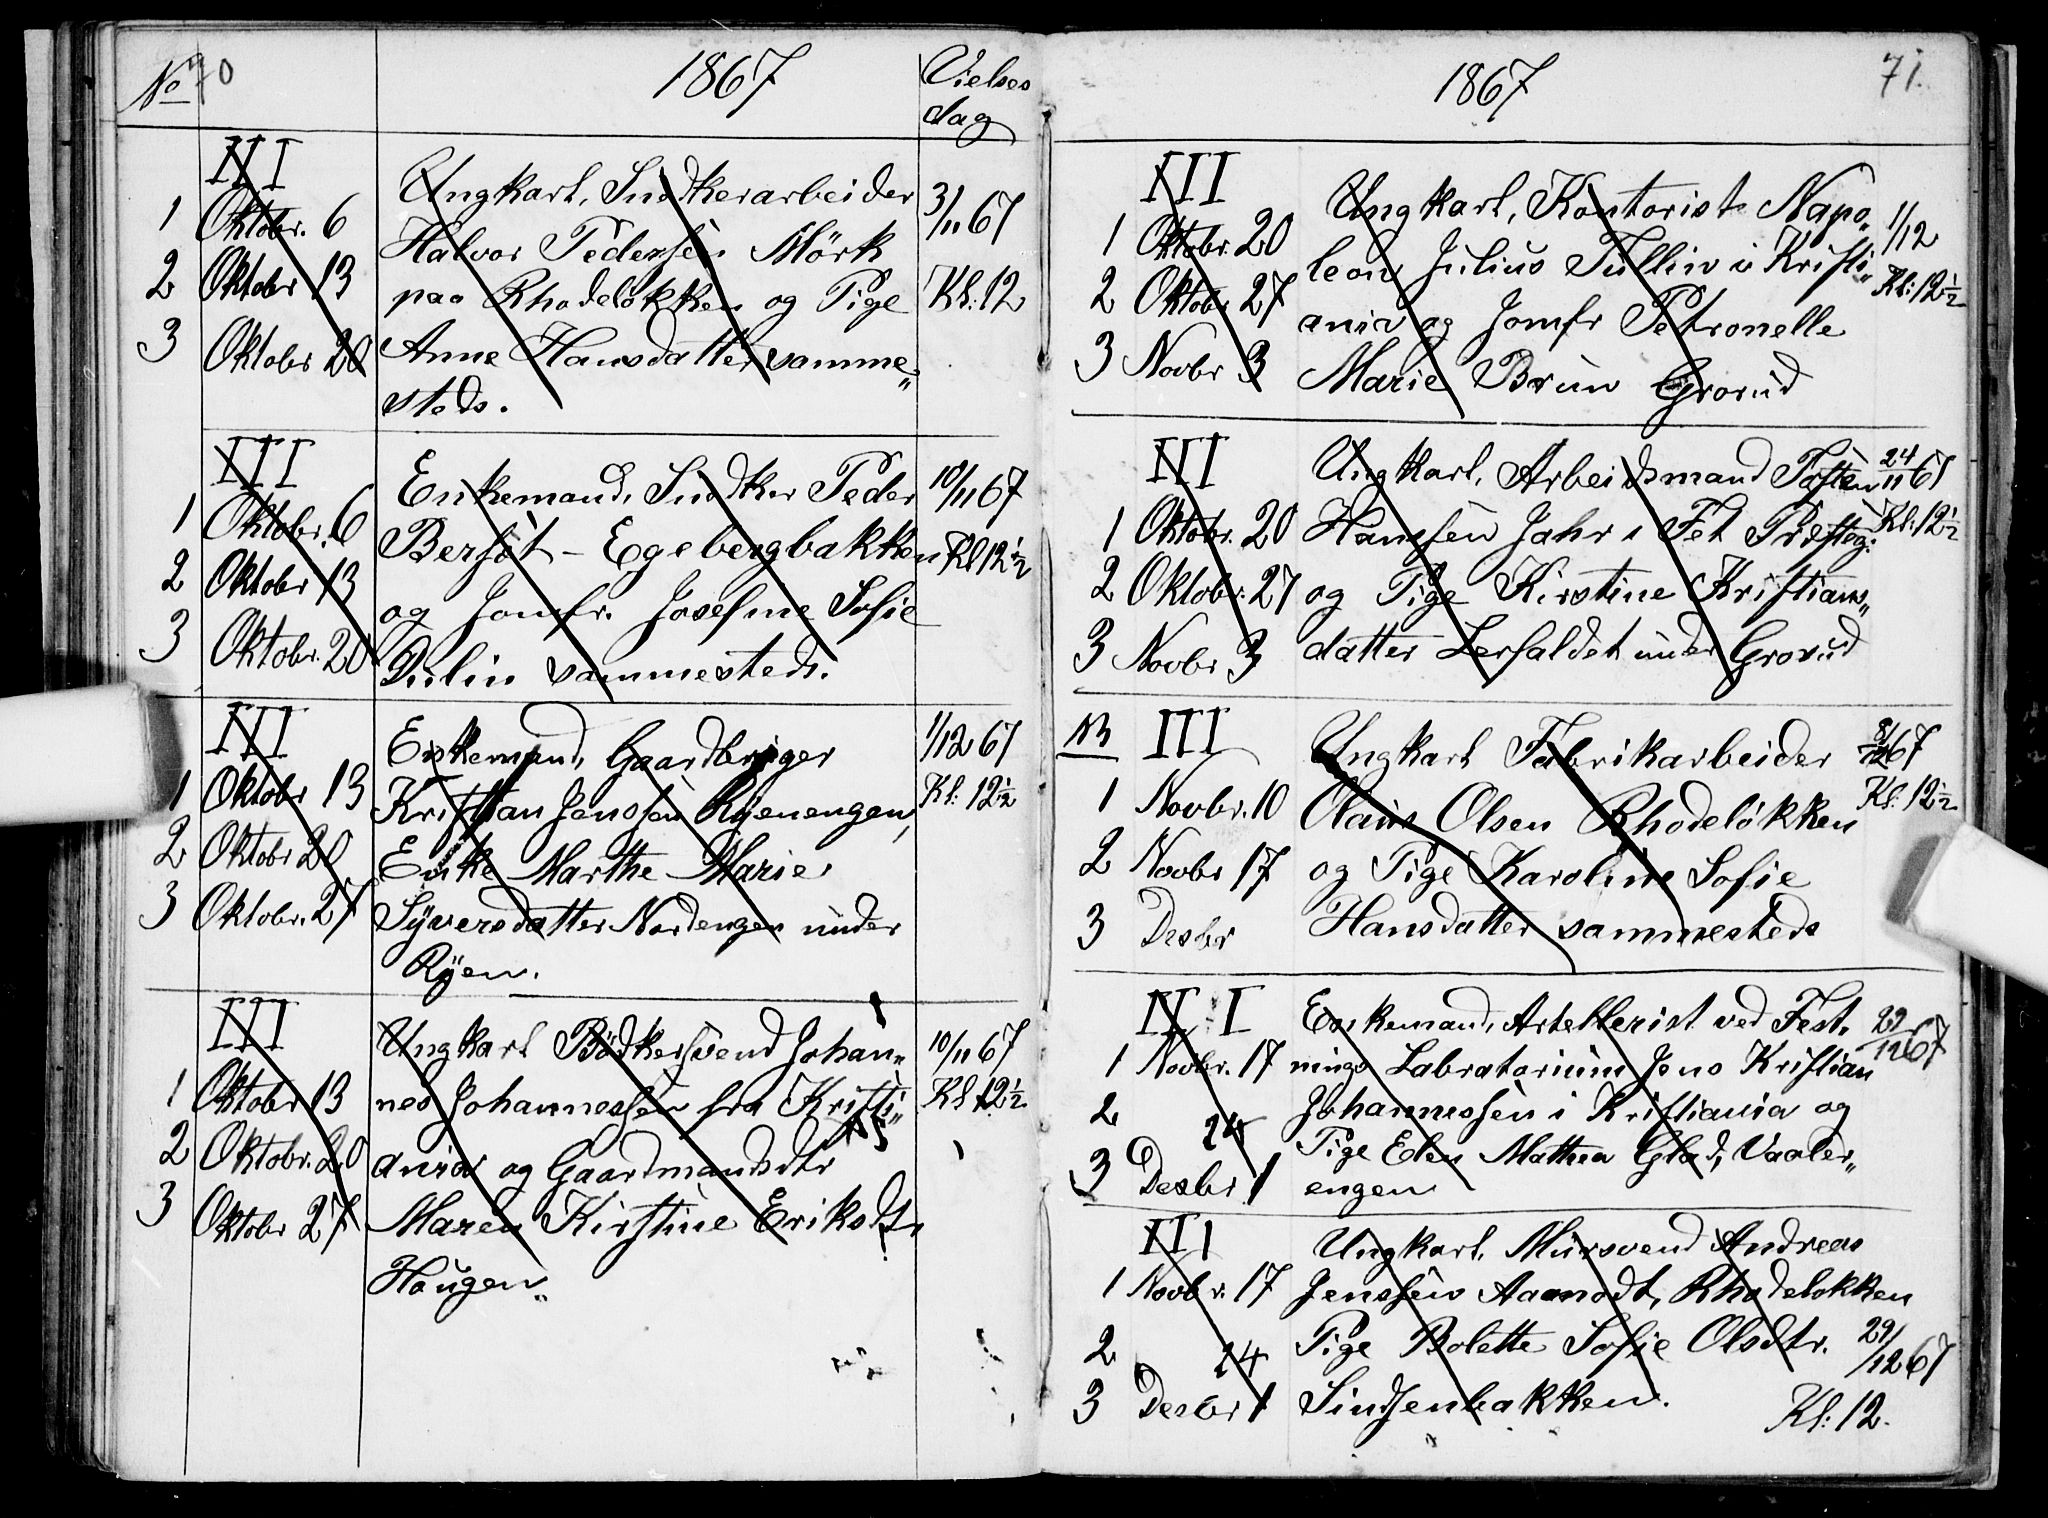 No 70 1867 Vielses
dag
III
1 Oktobr. 6 Ungkarl, Snedkerarbeider 3/11 67
2 Oktobr 13 Halvor Pedersen Mörk
paa Rhodelökken og Pige Kl: 12
3 Oktobr 20 Anne Hansdatter samme„
steds.
III
1 Oktobr. 6 Enkemand, Snedker Peder 10/11 67
2 Oktobr 13 – Egebergbakken Kl 12 ½
3 Oktobr. 20 og Jomfr. Josefine Sofie
sammesteds.
III
1 Oktobr 13 Enkemand, Gaardbruger 1/12 67
2 Oktobr 20 Kristian Jenssen Ryenengen, Kl: 12 ½
Enke Marthe Marie
3 Oktobr. 27 Syversdatter Nordengen under
Ryen.
III
1 Oktobr 13 Ungkarl Bödkersvend Johan„ 10/11 67
2 Oktobr. 20 nes Johannessen fra Kristi„ Kl 12 ½
ania og Gaardmandsdtr
3 Oktobr 27 Maren Kirstine Eriksdtr
Haugen„
1867 71.
III
1 Oktobr. 20 Ungkarl, Kontorist Napo„ 1/12
2 Oktobr 27 leon Julius Tullin i Kristi„ Kl: 12 ½
ania og Jomfr Petronelle
3 Novbr 3 Marie Brun Grorud
III
Ungkarl, Arbeidsmand Tosten 24/11 67
1 Oktobr. 20 Hanssen Jahr i Fet Præsteg: Kl: 12 ½
2 Oktobr. 27 og Pige Kirstine Kristians„
3 Novbr 3 datter Lerfaldet under Grorud
NB III
Ungkarl Fabrikarbeider 8/12 67
1 Novbr. 10 Olaus Olsen Rhodelökken Kl: 12 ½
2 Novbr 17 og Pige Karoline Sofie
3 Desbr Hansdatter sammesteds
III
Enkemand, Artellerist ved Fest„ 29/12 67
1 Novbr. 17 nings Labratorium Jens Kristian
2 24 Johannessen i Kristiania og
Pige Elen Mathea Glad, Vaaler„
3 Desbr 1 engen
III
Ungkarl, Mursvend Andreas
1 Novbr. 17 Jenssen Aamodt, Rhodelokken
2 24 Pige Bolette Sofie Olsdtr. 29/12 67
3 Desbr 1 Sindsenbakken. Kl: 12.